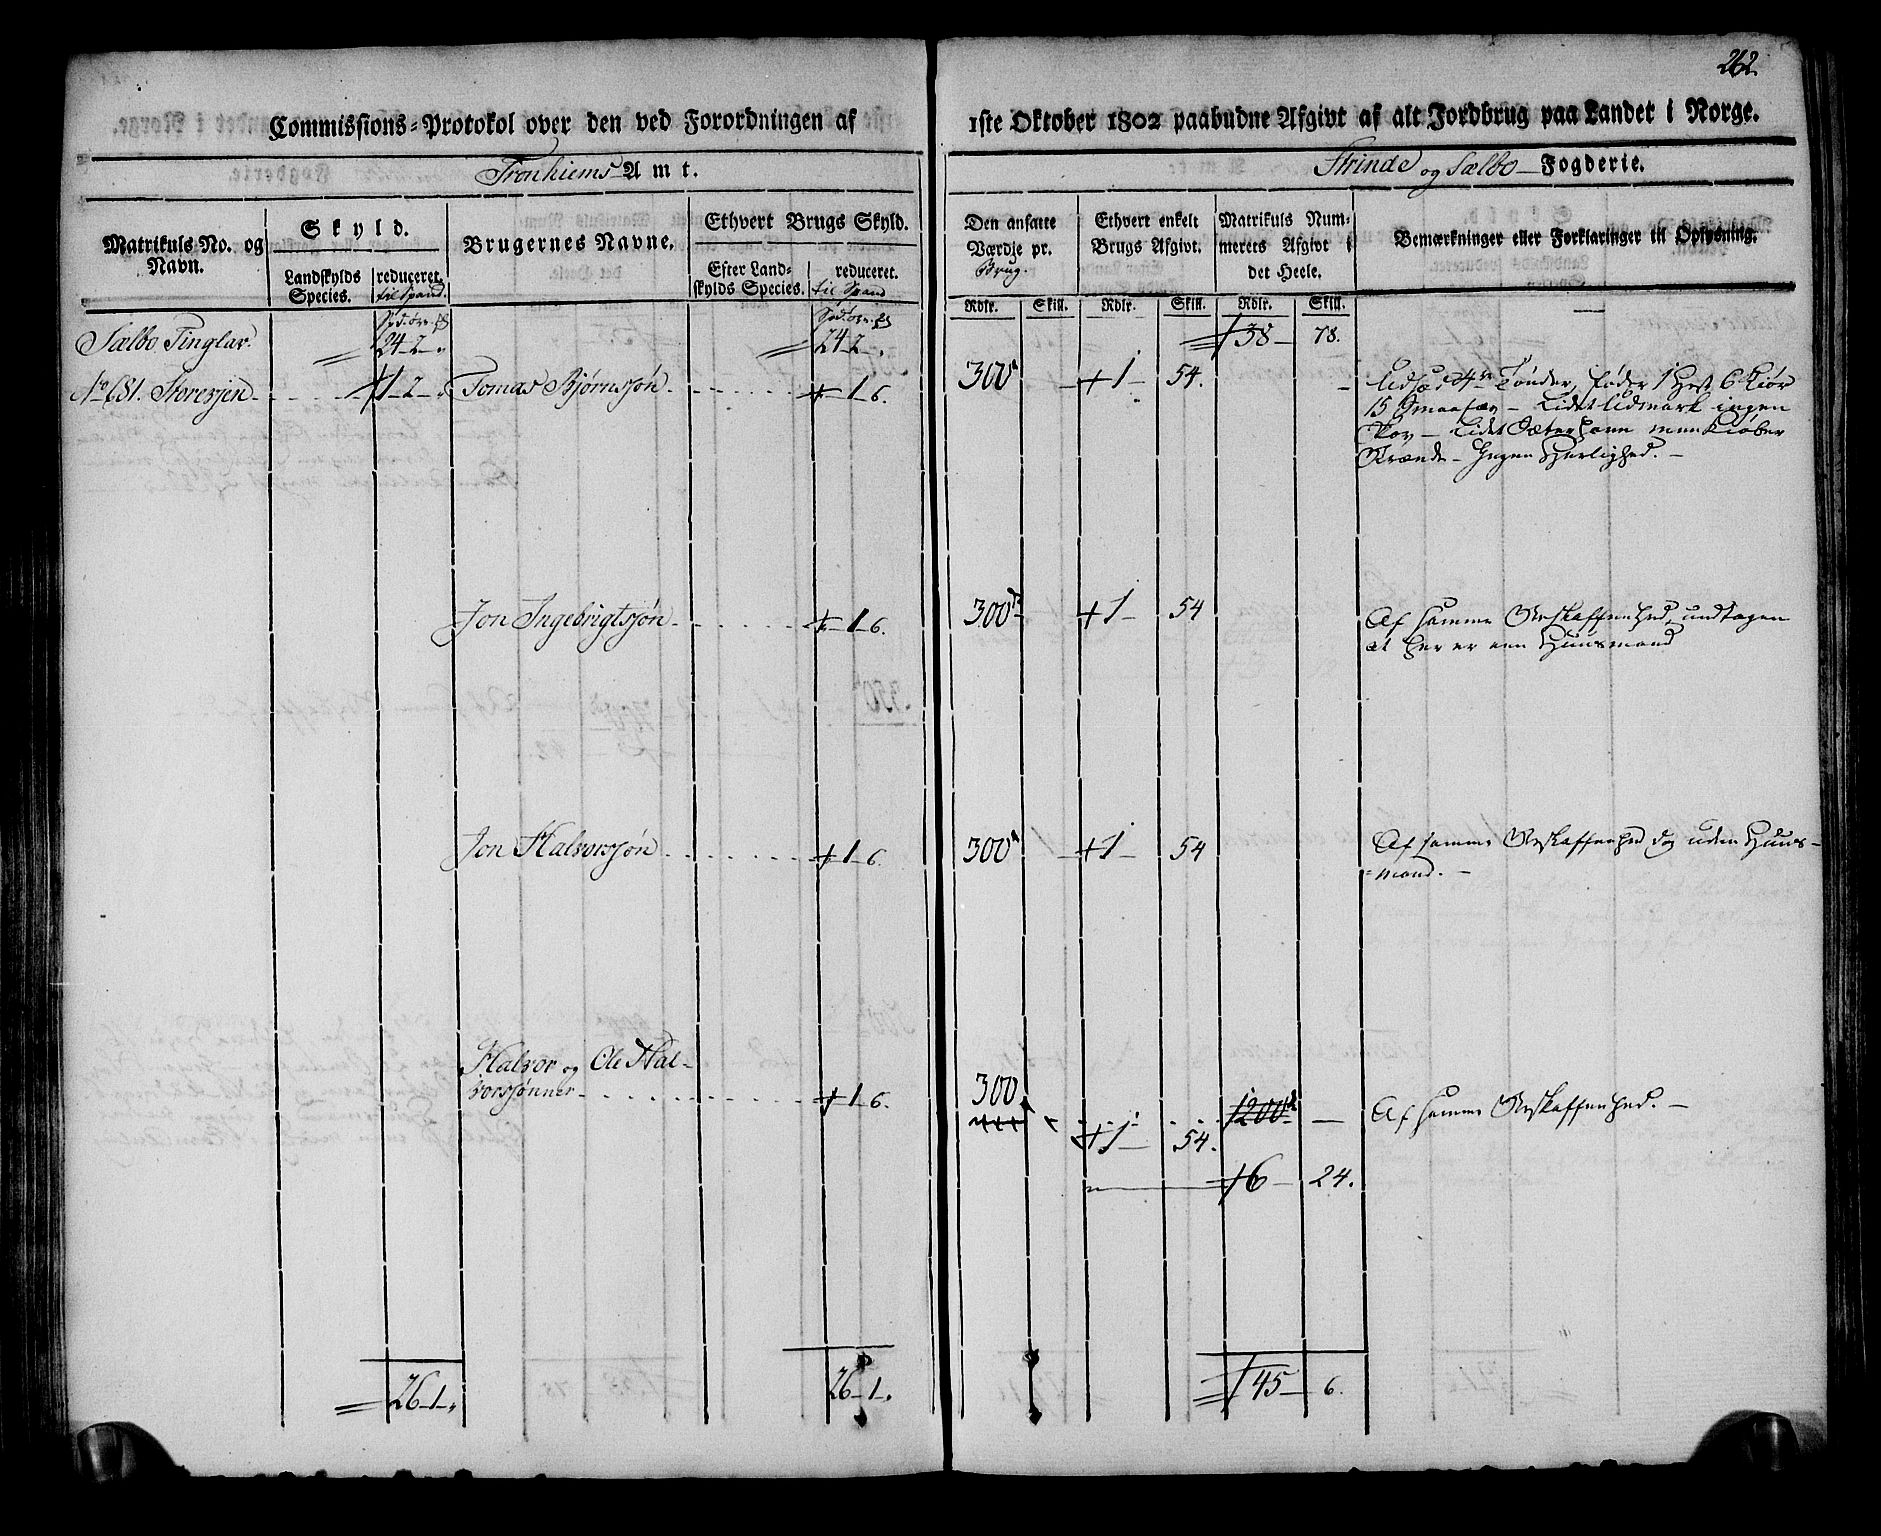 262.
Commissions=Protokol over den ved Forordningen af 1ste Oktober 1802 paabudne Afgivt af alt Jordbrug paa Landet i Norge.
Tronhiems Amt.
Strinde og Sælbo Fogderie.
Matrikuls No. og Navn.
Skyld.
Landskylds Species.
reduceret. til Spand
Brugernes Navne.
Ethvert Brugs Skyld.
Efter Landskylds Species.
reduceret. til Spand
Den ansatte Værdje pr. Brug
Ethvert enkelt Brugs Afgivt.
Matrikuls Nummerets Afgivt i det Heele.
Bemærkninger eller Forklaringer til Oplysning.
Rdlr. Skill. Rdlr. Skill. Rdlr. Skill.
Sælbo Tinglav. 24-2-" 24-2-" 138- 78.
No 181. Storesjen 1-2- Tomas Bjørnssøn -1-6. 300 1- 54.
Udsæd 4 Tønder, føder 1 Hest 6 Kiør
15 Smaafæ - Lidet Udmark ingen
Skov - Lidet Sæterhavn men kiøber
Brænde - Ingen Herlighed. -
Jon Ingebrigtsjøn -1-6. 300 1- 54
Af samme Beskaffenhed, undtagen
at her er een Huusmand
Jon Halvorssøn -1-6. 300 1- 54
Af samme Beskaffenhed dog uden Huus-
=mand. -
Halvor og Ole Hal-
vorssønner -1-6. 300 1- 54. 1200 -
Af samme Beskaffenhed. -
6- 24.
26-1-" 26-1-" 145- 6.